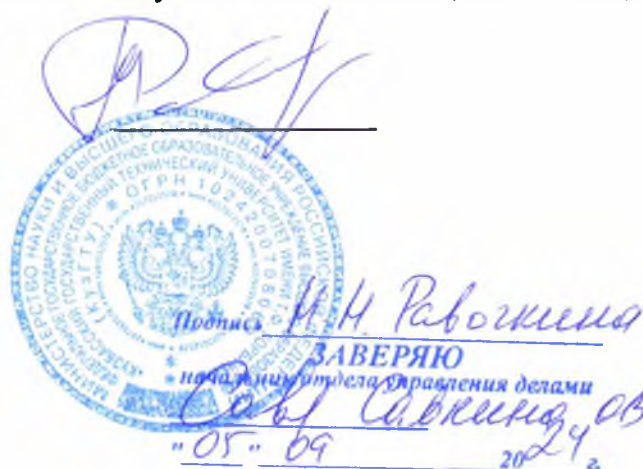 МИНИСТЕРСТВО НАУКИ И ВЫСШЕГО ОБРАЗОВАНИЯ РОССИЙСКОЙ
ФЕДЕРАЛЬНОЕ ГОСУДАРСТВЕННОЕ БЮДЖЕТНОЕ ОБРАЗОВАТЕЛЬНОЕ УЧРЕЖДЕНИЕ
ГОСУДАРСТВЕННЫЙ ТЕХНИЧЕСКИЙ УНИВЕРСИТЕТ ИМЕНИ
(КузГТУ) * ОГРН
Подпись Н.Н. Равочкина
ЗАВЕРЯЮ
начальник отдела управления делами
Савкина ОВ
"05" 09 2024 г.